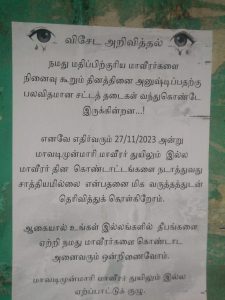 விசேட அறிவித்தல்
நமது மதிப்பிற்குரிய மாவீரர்களை
நினைவு கூறும் தினத்தினை அனுஷ்டிப்பதற்கு
பலவிதமான சட்டத் தடைகள் வந்துகொண்டே
இருக்கின்றன...!
எனவே எதிர்வரும் 27/11/2023 அன்று
மாவடிமுன்மாரி மாவீரர் துயிலும் இல்ல
மாவீரர் தின கொண்டாட்டங்களை நடாத்துவது
சாத்தியமில்லை என்பதனை மிக வருத்தத்துடன்
தெரிவித்துக் கொள்கிறோம்.
ஆகையால் உங்கள் இல்லங்களில் தீபங்களை
ஏற்றி நமது மாவீரர்களை கொண்டாட
அனைவரும் ஒன்றிணைவோம்.
மாவடிமுன்மாரி மாவீரர் துயிலும் இல்ல
ஏற்பாட்டுக் குழு.